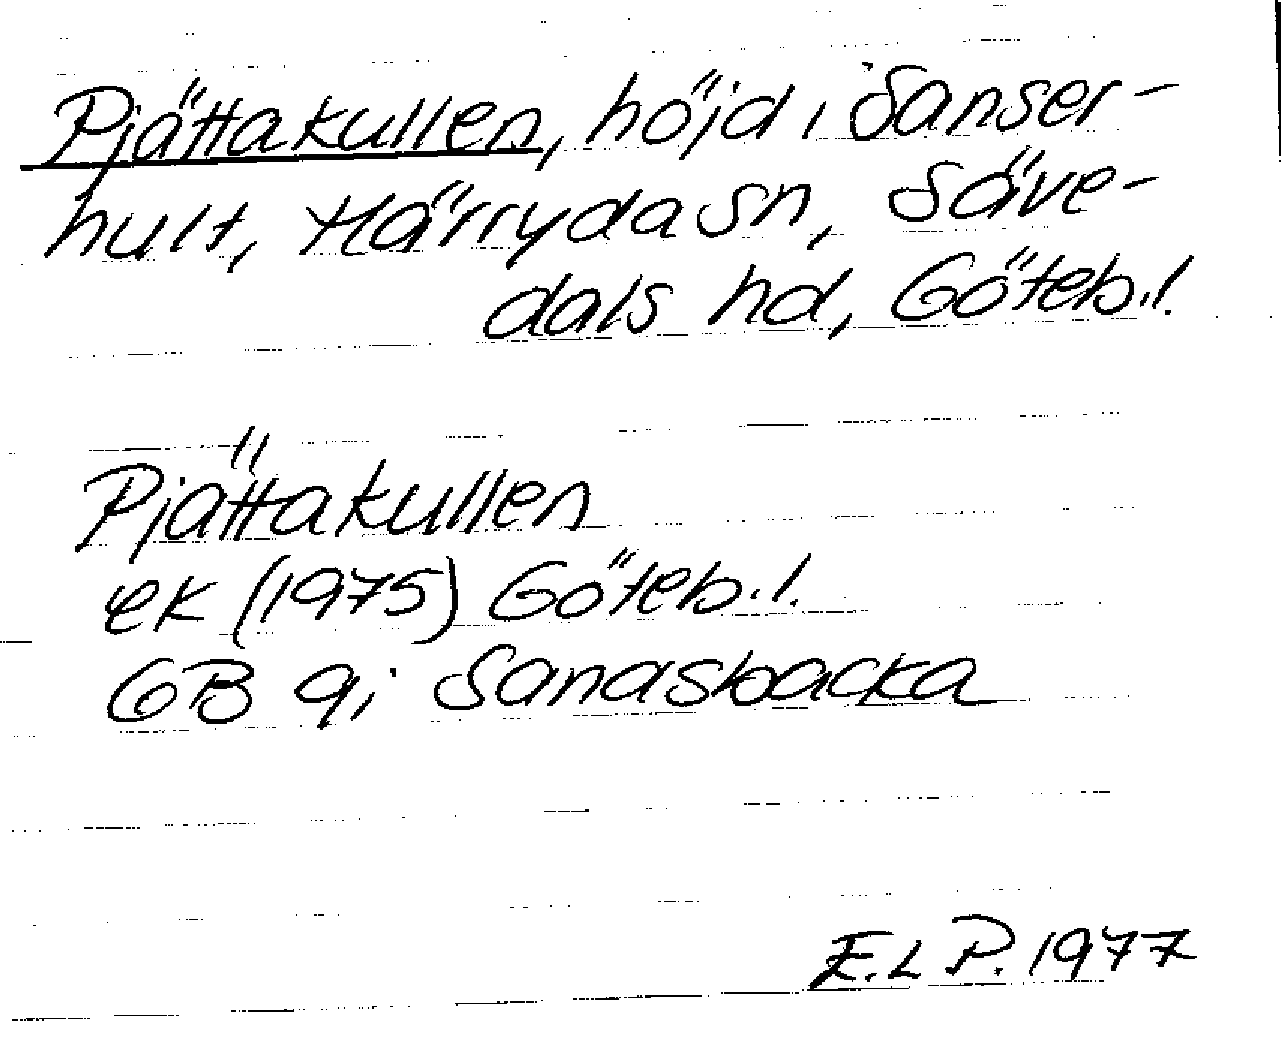 Pjättakullen, höjd i Sanser-
hult, Härryda sn, Säve-
dals hd, Göteb.l.
Pjättakullen
ek (1975) Göteb.l.
GB 9; Sandsbacka
E.L P. 1977